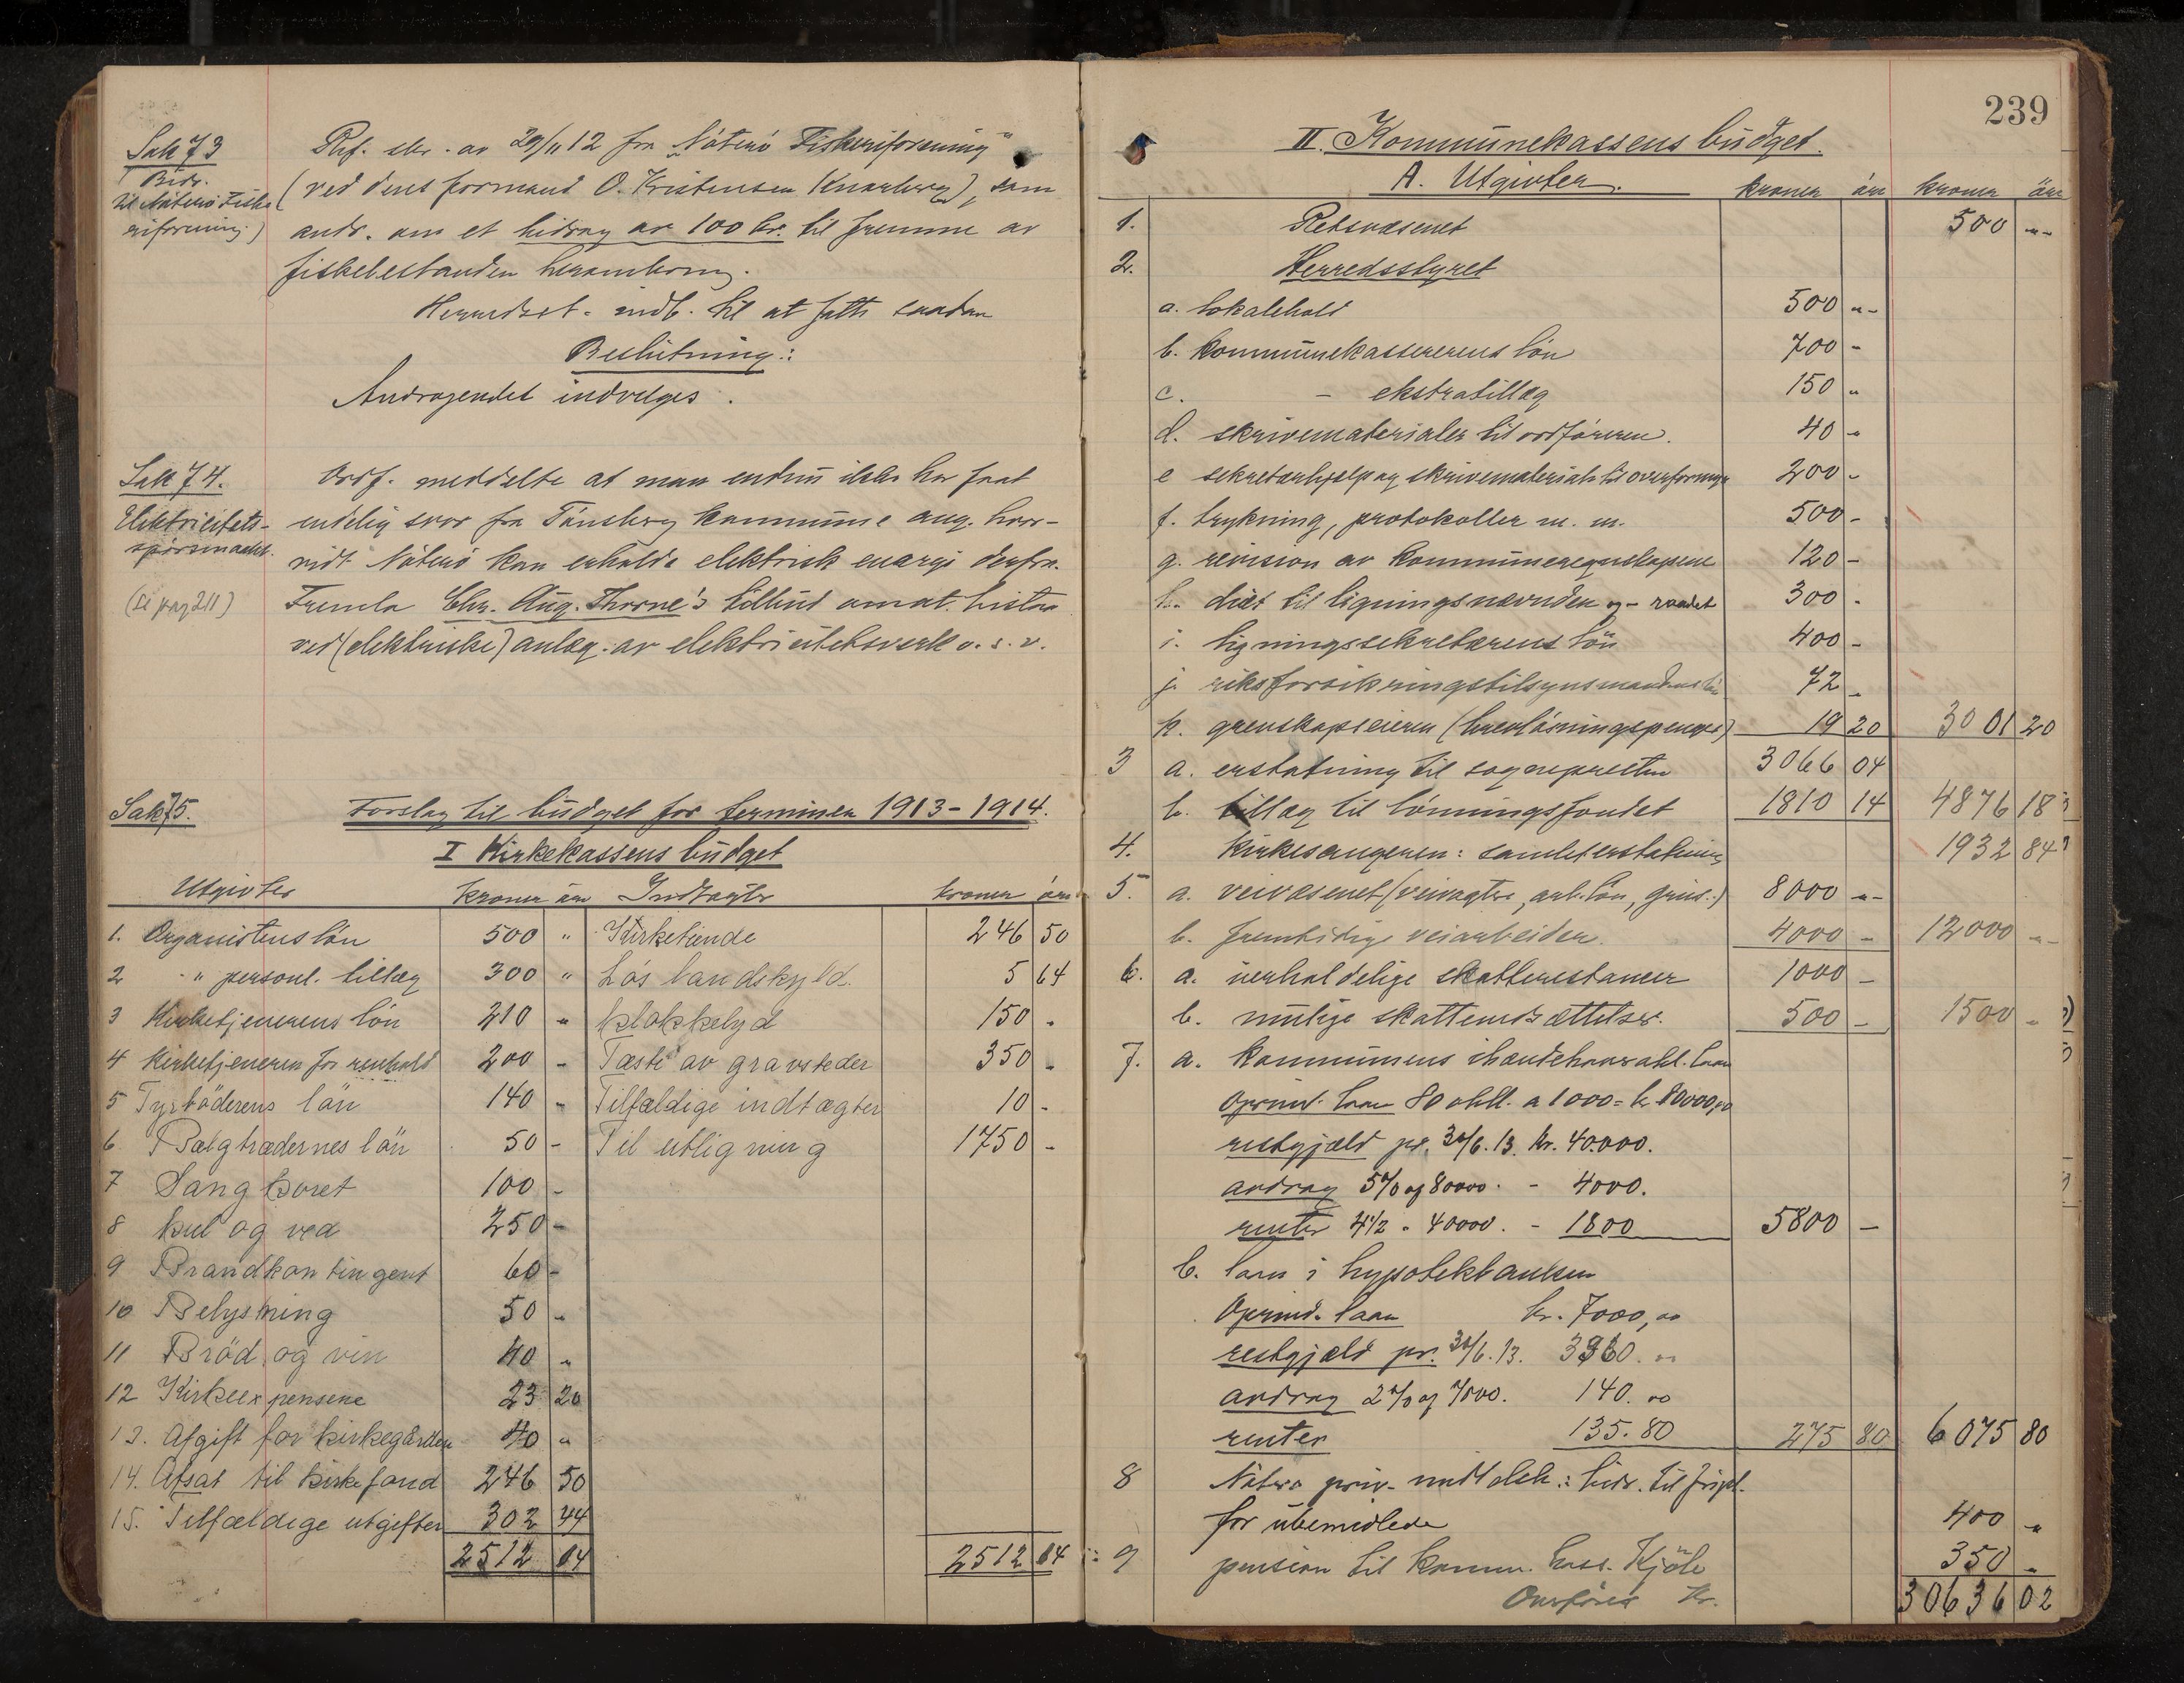 Sak 73
Bidr.
til Nøterø Fiske
riforening)
Ref. skr. av 29/11 12 fra "Nøterø Fiskeriforening"
(ved dens formand O. Kristensen Knarberg), som
andr. om et bidrag av 100 kr. til fremme av
fiskebestanden
Herredsst. indb. til at fatte saadan
Beslutning:
Andragendet indvilges.
Sak 74.
Elektricitets-
spørsmaalet.
(Se pag 211)
Ordf. meddelte at man endnu ikke har faat
endelig svar fra Tønsberg kommune ang. hvor-
vidt Nøterø kan erholde elektrisk energi derfra.
Fremla Chr. Aug. Thorne's tilbud
ved (elektriske) anlæg. av elektricitetsverk o. s. v.
Sak 75.
Forslag til budget for terminen 1913-1914.
I Kirkekassens budget
Utgivter kroner øre Indtægter kroner øre
1. Organistens løn 500 " Kirketiende 246 50
2 -" personl. tillæg 300 " Løs landskyld. 5 64
3 Kirketjenerens løn 210 " Klokkelyd 150 "
4 Kirketjeneren for renhold 200 - Fæste av gravsteder 350 -
5 Fyrbøderens løn 140 - Tilfældige indtægter 10 -
6 Bælgtrædernes løn 50 - Til utligning 1750 -
7 Sangkoret 100 -
8 kul og ved 250 -
9 Brandkontingent 60 -
10 Belysning 50 -
11 Brød og vin 40 "
12 Kirkeexpensene 23 20
13. Afgift for kirkegården 40 "
14. Afsat til kirkefond 246 50
15. Tilfældige utgifter 302 44
2512 14 2512 14
239
II. Kommunekassens budget.
A. Utgivter. kroner øre kroner øre
1. Retsvæsenet 500 "-
2. Herredsstyret
a. lokalehold 500 "-
b. kommunekassererens løn 700 -
c. - ekstratillæg 150 "
d. skrivematerialer til ordføreren. 40 -
e sekretærhjælp og skrivemateriale til overformynd 200 -
f. trykning, protokoller m. m. 500 -
g. revision av kommuneregnskapene 120 -
h. diæt til ligningsnævnden og - raadet 300 -
i. ligningssekretærens løn 400 -
j. riksforsikringstilsynsmandens løn 72 -
k. grevskapseieren (brevløsningspenger) 19 20 3001 20
3 a. erstatning til sognepresten 3066 04
b. tillæg til lønningsfondet 1810 14 4876 18
4. Kirkesangeren: samlet erstatning 1932 84
5. a. veivæsenet (veivogtere, arb. løn, grus.) 8000 "-
b. fremtidige veiarbeider. 4000 - 12000 "-
6. a. uerholdelige skatterestancer 1000 -
b. mulige skattenedsættelser. 500 - 1500 -
7. a. kommunens ihændehaverobl. laan
Oprind. laan 80 obll. a 1000 = kr 80000,00
restgjæld pr. 30/6.13. kr. 40.000.
avdrag 5% af 80000. - 4000.
renter 4½ " 40000. - 1800 5800 -
b. laan i hypotekbanken
Oprind. laan kr. 7000,00
restgjæld pr. 30/6.13. 3360. 00
avdrag 2% af 7000. 140. 00
renter 135.80 275 80 6075 80
8 Nøterø priv. middelsk.: bidr. til fripl.
for ubemidlede 400 "
9 pension til komm. kass. Kjøle 350 -
Overføres kr. 30636 02